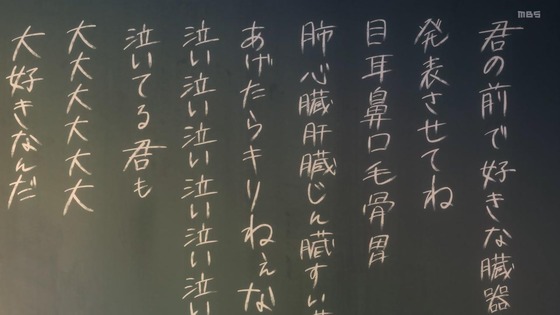 MBS
君の前で好きな臓器
発表させてね
目耳鼻口毛骨胃
肺心臓肝臓じん臓すい
あげたらキリねぇな
泣い泣い泣い泣い泣い泣い
泣いてる君も
大大大大大大
大好きなんだ